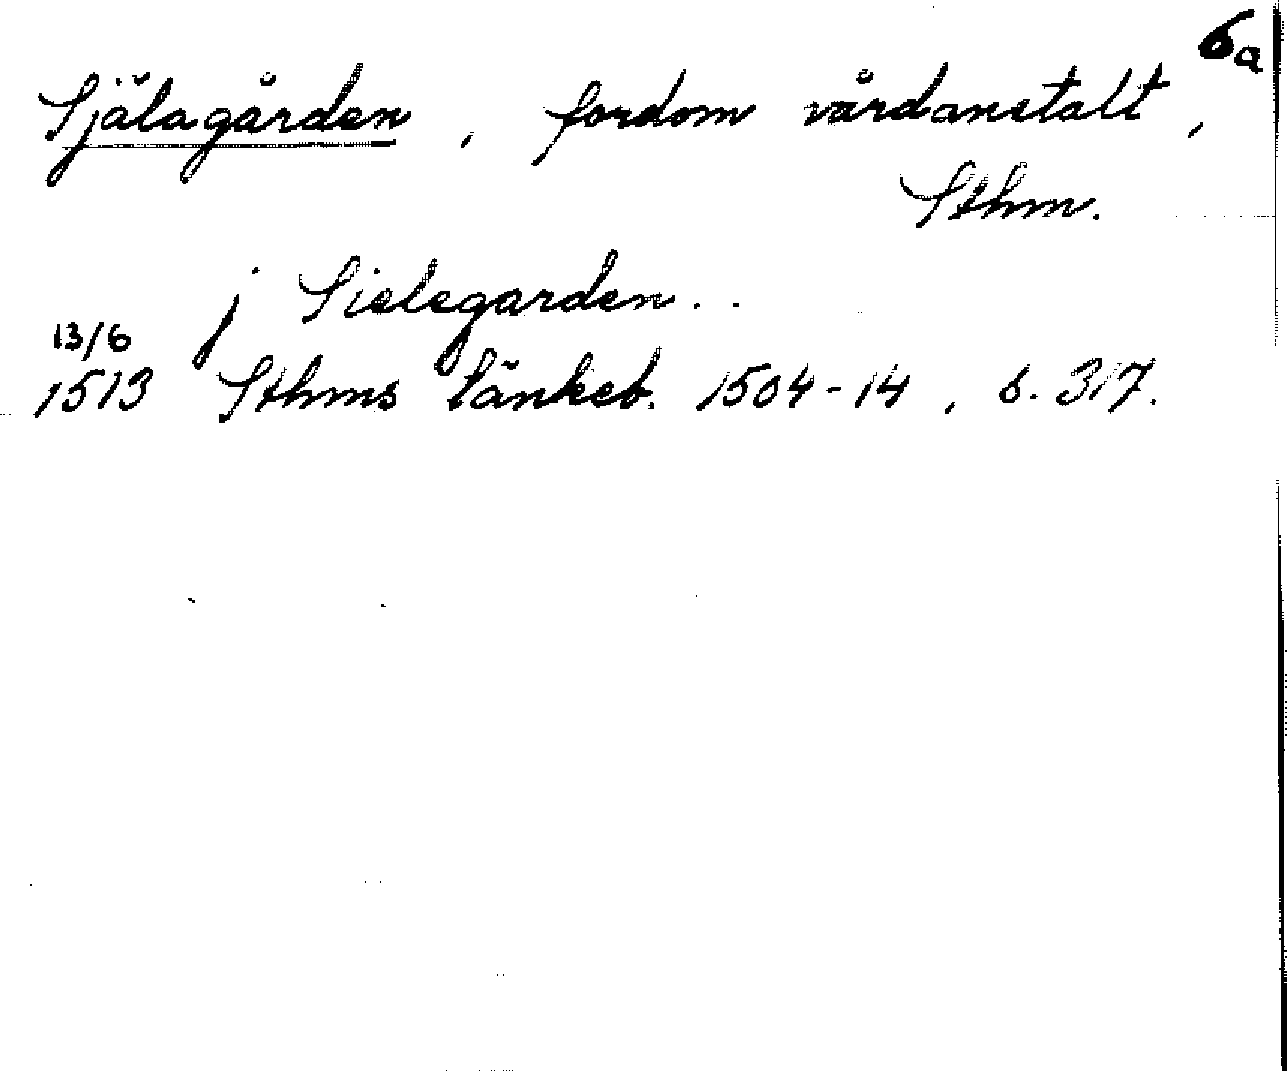 6a
Själagården, fordom vårdanstalt,
Sthm.
j Sielegarden..
13/6
1513 Sthms tänkeb. 1504-14, s. 317.